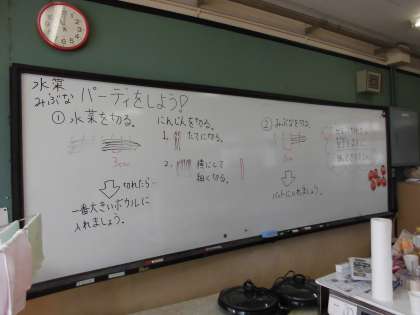 水菜
みぶな パーティをしよう!
① 水菜を切る。
3cm
切れたら…
一番大きいボウルに
入れましょう。
にんじんを切る。
1. たてに切る。
2. 横にして
細く切る。
② みぶなを切る。
3cm
バットに入れましょう。